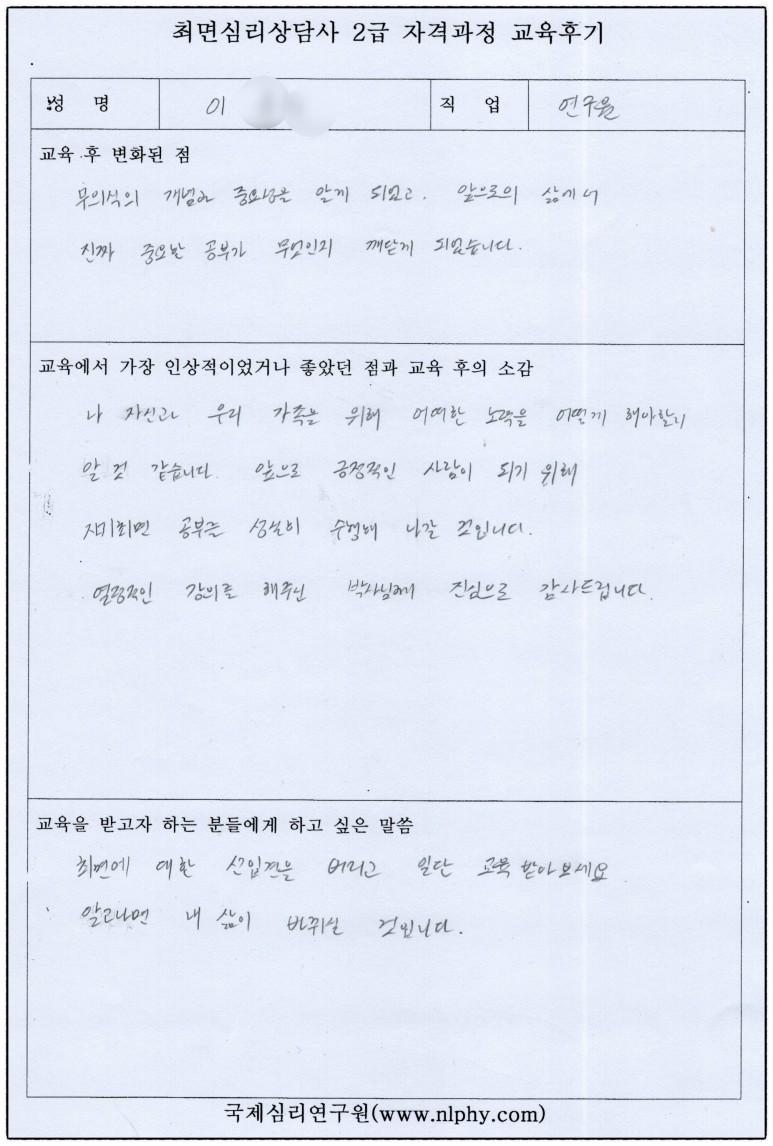 최면심리상담사 2급 자격과정 교육후기
성 명 이 직 업 연구원
교육 후 변화된 점
무의식의 개념과 중요성을 알게 되었고, 앞으로의 삶에서
진짜 중요한 공부가 무엇인지 깨닫게 되었습니다.
교육에서 가장 인상적이었거나 좋았던 점과 교육 후의 소감
나 자신과 우리 가족을 위해 어떠한 노력을 어떻게 해야할지
알 것 같습니다. 앞으로 긍정적인 사람이 되기 위해
자기최면 공부를 성실히 수행해 나갈 것입니다.
열정적인 강의를 해주신 박사님께 진심으로 감사드립니다.
교육을 받고자 하는 분들에게 하고 싶은 말씀
최면에 대한 선입견을 버리고 일단 교육 받아보세요
알고나면 내 삶이 바뀌실 것입니다.
국제심리연구원(www.nlphy.com)